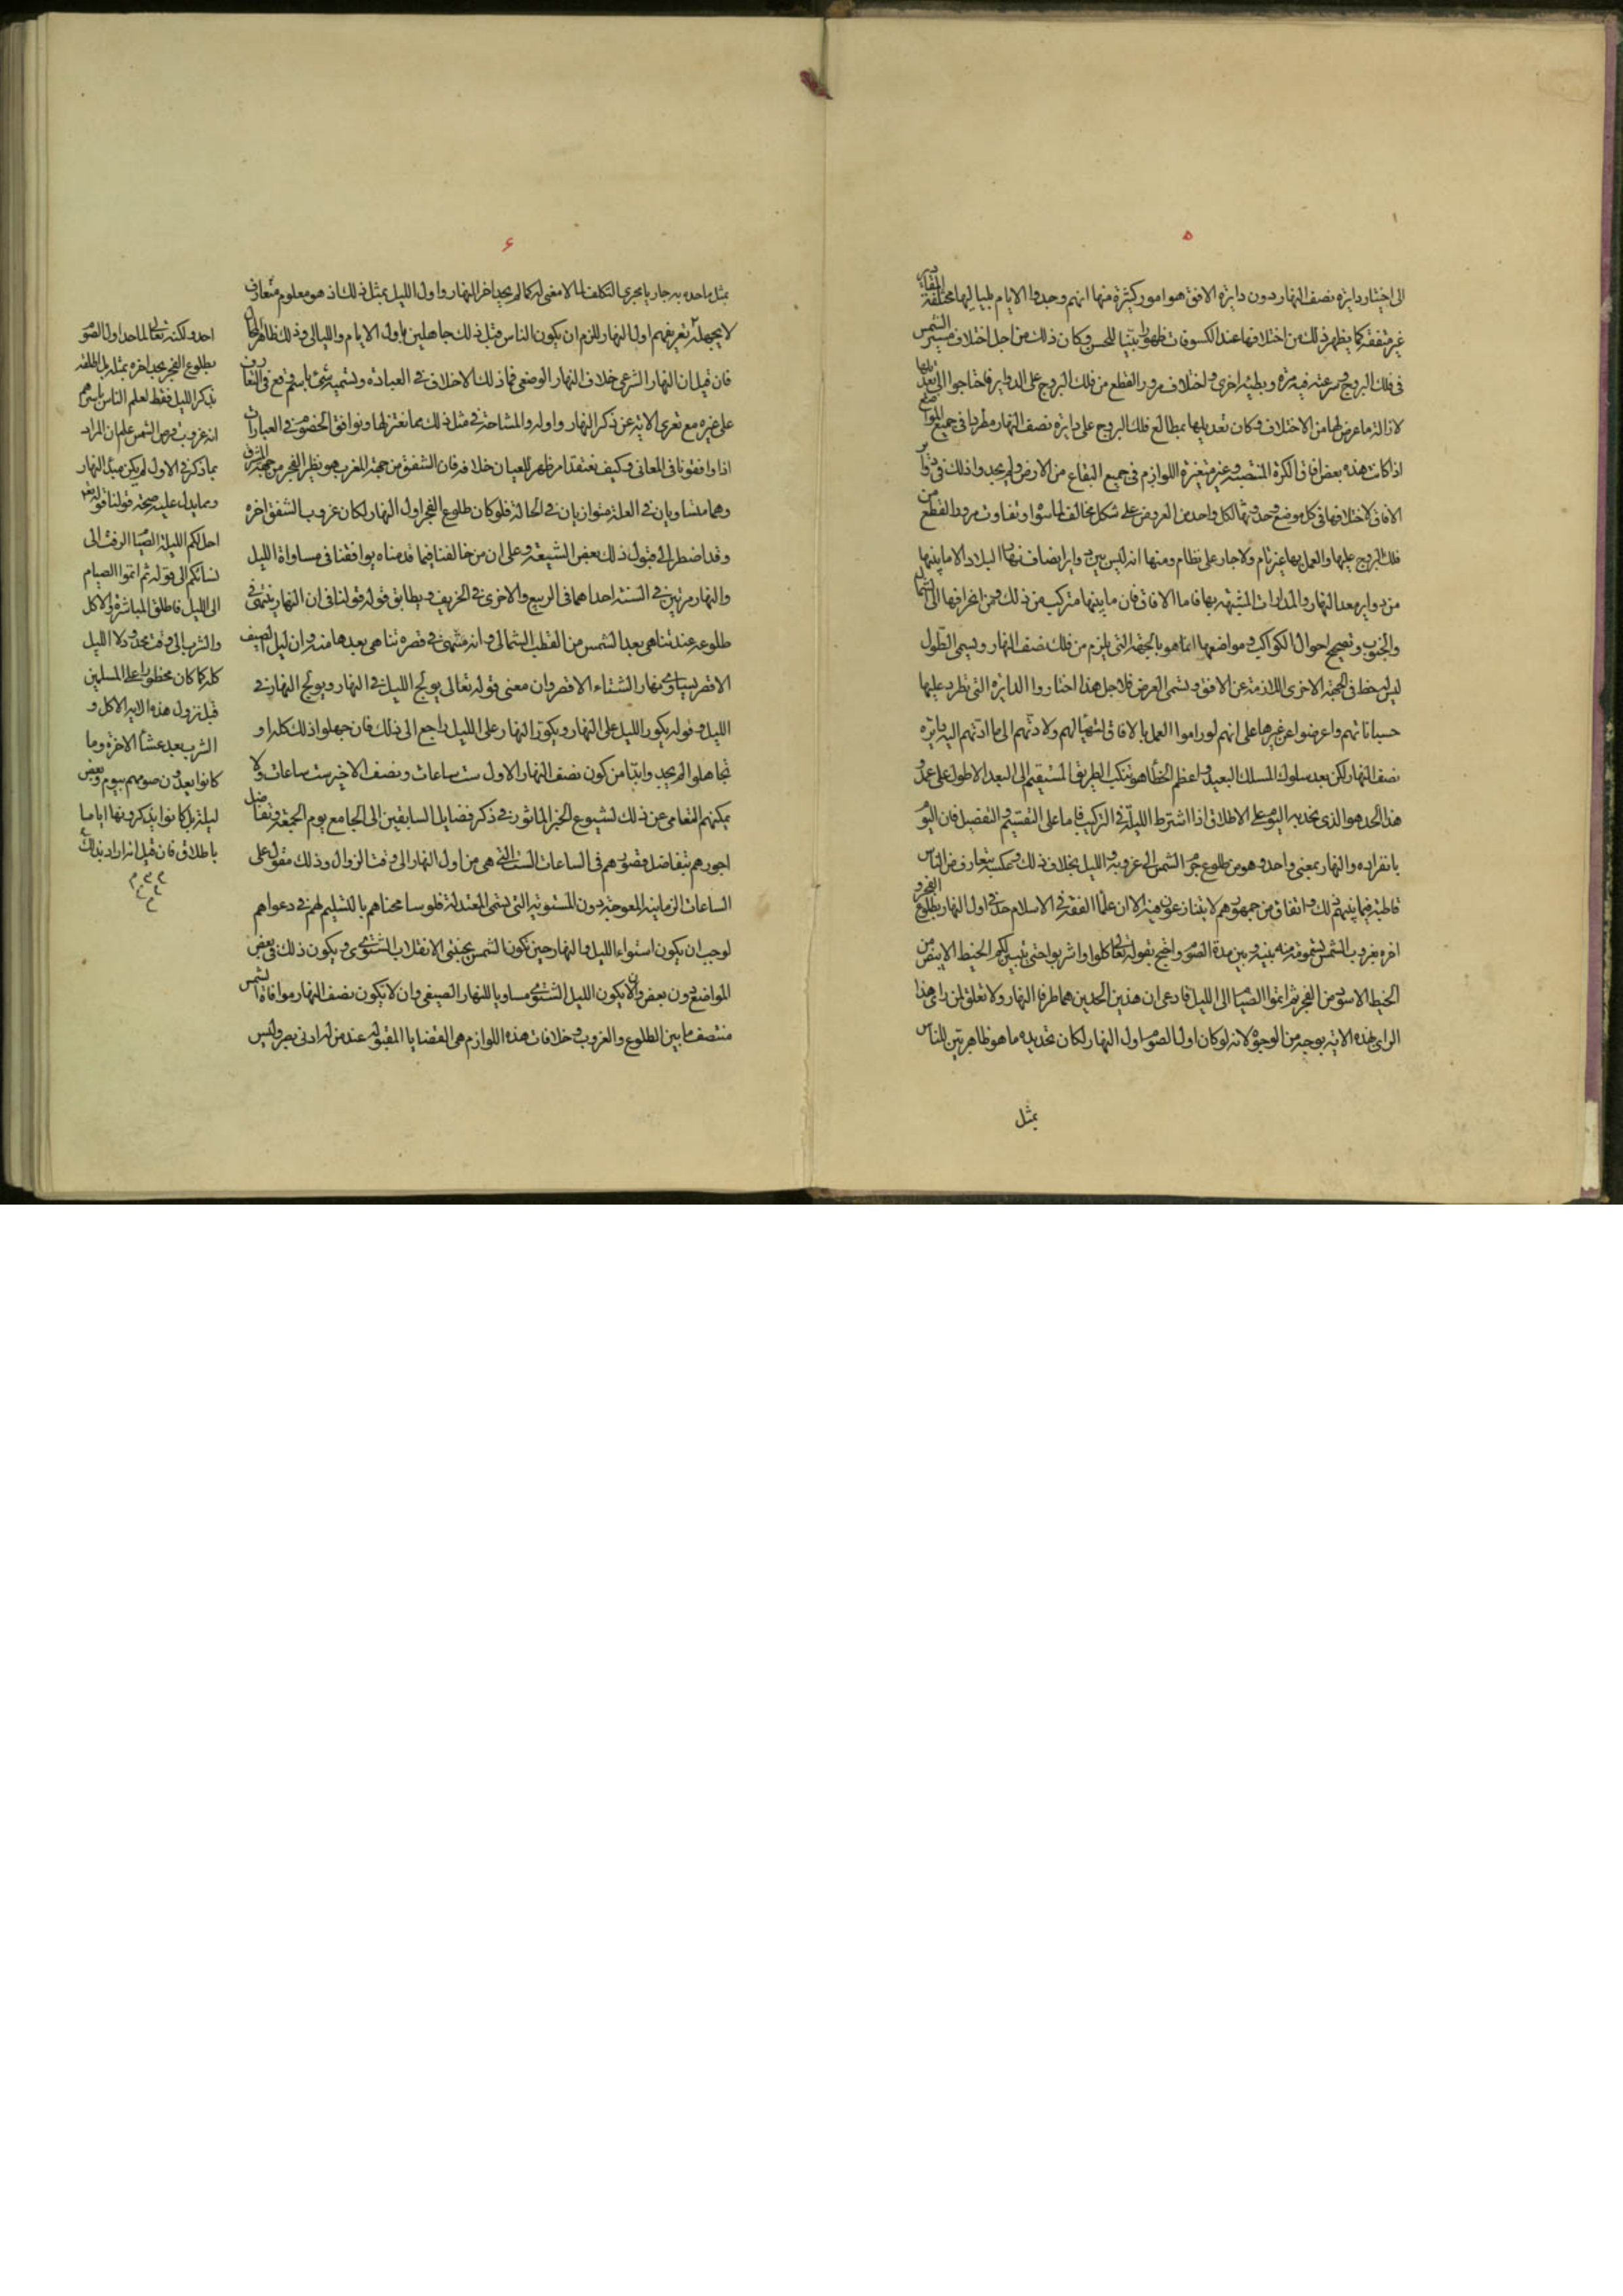 ٥
الى اختيار دايرة نصف النهار دون دايرة الافق هو امور كثيرة منها انهم وجدوا الايام بلياليها مختلفة المقادير
غير متفقة كما يظهر ذلك من اختلافها عند الكسوفات ظهورا بينا للحس وكان ذلك من اجل اختلاف مسير الشمس
فى فلك البروج وسرعته فيه مرة وبطئه اخرى واختلاف مرور القطع من فلك البروج على الدواير فاحتاجوا الى تعديلها
لازالة ما عرض لها من الاختلاف وكان تعديلها بمطالع فلك البروج على دايرة نصف النهار مطردا فى جميع المواضع
اذ كانت هذه بعض افاق الكرة المنتصبة وغير متغيرة اللوازم فى جميع البقاع من الارض ولم يجدوا ذلك فى دواير
الافاق لاختلافها فى كل موضع وحدوثها لكل واحد من العروض على شكل مخالف لما سواه وتفاوت مرور القطع من
فلك البروج عليها والعمل بها غير تام ولا جار على نظام ومنها انه ليس بين دواير انصاف نهار البلاد الا ما بينها
من دواير معدل النهار والمدارات المشبهة بها فاما الافاق فان ما بينها مركب من ذلك ومن انحرافها الى الشمال
والجنوب وتصحيح احوال الكواكب ومواضعها انما هو بالجهة التى يلزم من فلك نصف النهار ويسمى الطول
ليس حظ فى الجهة الاخرى اللازمة عن الافق وتسمى العرض فلاجل هذا اختاروا الدايرة التى تطرد عليها
حسباناتهم واعرضوا عن غيرها على انهم لو راموا العمل بالافاق لتهيا لهم ولادتهم الى ما ادتهم اليه دايرة
نصف النهار لكن بعد سلوك المسلك البعيد واعظم الخطا هو تنكب الطريق المستقيم الى البعد الاطول على عمد و
هذا الحد هو الذى نحد به اليوم على الاطلاق اذا اشترط الليلة فى التركيب فاما على التقسيم والتفصيل فان اليوم
بانفراده والنهار بمعنى واحد وهو من طلوع جرم الشمس الى غروبه والليل بخلاف ذلك وعكسه بتعارف من الناس
قاطبة فيما بينهم ذلك واتفاق من جمهورهم لا يتنازعون فيه الا ان علما الفقه فى الاسلام حد اول النهار بطلوع الفجر و
اخره بغروب الشمس تسوية منه بينه وبين مدة الصوم واحتج بقوله تعالى كلوا واشربوا حتى يتبين لكم الخيط الابيض من
الخيط الاسود من الفجر ثم اتموا الصيام الى الليل فادعى ان هذين الحدين هما طرفا النهار ولا تعلق لمن راى هذا
الراى بهذه الاية بوجه من الوجوه لانه لو كان اول الصوم اول النهار لكان تحديده ما هو ظاهر بين للناس
بمثل
٦
بمثل ما حده به جار يا مجرى التكلف لما لا معنى له كما لم يحد اخر النهار واول الليل بمثل ذلك اذ هو معلوم متعارف
لا يجهله تعريفهم اول النهار للزم ان يكون الناس قبل ذلك جاهلين باول الايام والليالى وذلك ظاهر المحال
فان قيل ان النهار الشرعى خلاف النهار الوضعى فما ذلك الا خلاف فى العبادة وتسمية شىء باسم وقع فى التعارف
على غيره مع تعرى الاية عن ذكر النهار واوله والمشاحة فى مثل ذلك مما نعتزلها ونوافق الخصوم فى العبارات
اذا وافقونا فى المعانى وكيف نعتقد امر ظهر للعيان خلافه فان الشفق من جهة المغرب هو نظير الفجر من جهة المشرق
وهما متساويان فى العلة متوازيان فى الحالة فلو كان طلوع الفجر اول النهار لكان غروب الشفق اخره
وقد اضطر الى قبول ذلك بعض الشيعة وعلى ان من خالفنا فيما قدمناه يوافقنا فى مساواة الليل
والنهار مرتين فى السنة احداهما فى الربيع والاخرى فى الخريف ويطابق قوله قولنا فى ان النهار ينتهى فى
طلوعه عند تناهى بعد الشمس من القطب الشمالى وانه منتهى فى قصره تناهى بعدها منه وان ليل الصيف
الاقصر يساوى نهار الشتاء الاقصر وان معنى قوله تعالى يولج الليل فى النهار ويولج النهار فى
الليل وقوله يكور الليل على النهار ويكور النهار على الليل راجع الى ذلك فان جهلوا ذلك كله او
تجاهلوا لم يجدوا بدا من كون نصف النهار الاول ست ساعات ونصف الاخير ست ساعات ولا
يمكنهم التعامى عن ذلك لشيوع الخبر الماثور فى ذكر فضايل السابقين الى الجامع يوم الجمعة وتفاضل
اجورهم بتفاضل قصورهم فى الساعات الست التى هى من اول النهار الى وقت الزوال وذلك مقول على
الساعات الزمانية المعوجة دون المستوية التى تسمى المعتدلة فلو سامحناهم بالتسليم لهم فى دعواهم
لوجب ان يكون استواء الليل والنهار حين تكون الشمس بجنبتى الانقلاب الشتوى ويكون ذلك فى بعض
المواضع دون بعض وان لا يكون الليل الشتوى مساويا للنهار الصيفى وان لا يكون نصف النهار موافاة الشمس
منتصف ما بين الطلوع والغروب وخلافات هذه اللوازم هى القضايا المقبولة عند من له ادنى بصر وليس
احد ولكنه تعالى لما حد اول الصوم
بطلوع الفجر لم يحد اخره بمثله بل اطلقه
بذكر الليل فقط لعلم الناس باسرهم
انه غروب قرص الشمس علم ان المراد
بما ذكر فى الاول لم يكن مبدأ النهار
ومما يدل على صحة قولنا قوله تعالى
احل لكم ليلة الصيام الرفث الى
نسائكم الى قوله ثم اتموا الصيام
الى الليل فاطلق المباشرة والاكل
والشرب الى وقت محدود لا الليل
كله كما كان محظورا على المسلمين
قبل نزول هذه الاية الاكل و
الشرب بعد عشاء الاخرة وما
كانوا يعدون صومهم بيوم وبعض
ليلة بل كانوا يذكرونها اياما
باطلاق فان قيل انه اراد بذلك